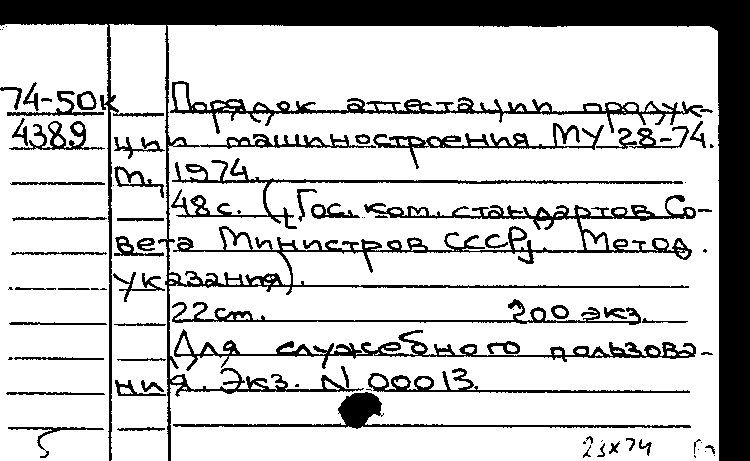 74-50к Порядок аттестации продук-
4389 ции машиностроения. МУ 28-74.
М., 1974.
48 с. ([Гос. ком. стандартов Со-
вета Министров СССР]. Метод.
указания).
22 см. 200 экз.
Для служебного пользова-
ния. Экз. N 00013.
5 23x74